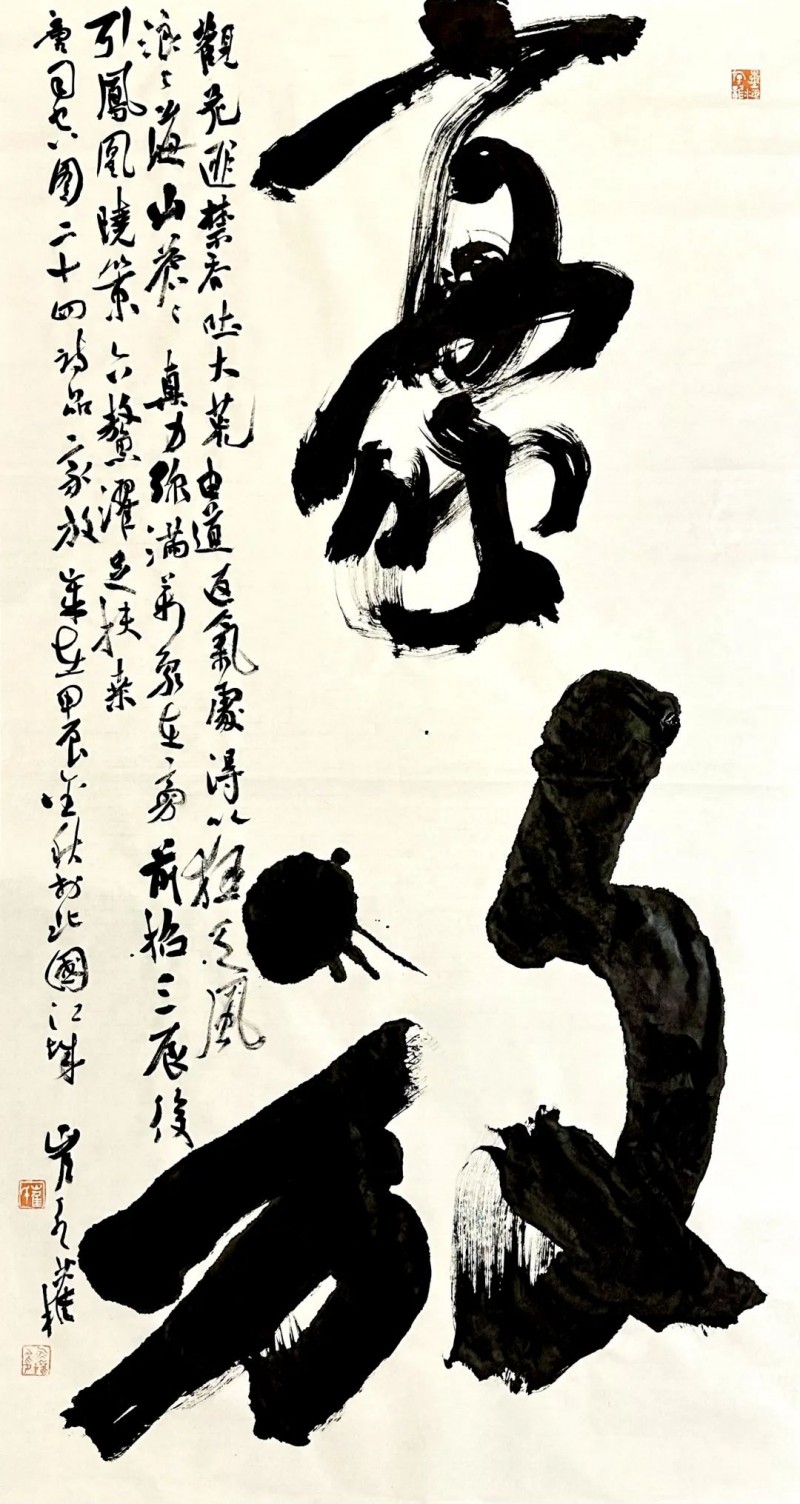 豪放
觀花匪禁吞吐大荒由道返氣處得以狂天風
浪〻海山蒼〻真力弥滿萬象在旁前招三辰後
引鳳凰曉策六鰲濯足扶桑
唐司空圖二十四詩品豪放歲在甲辰金秋於北國江城